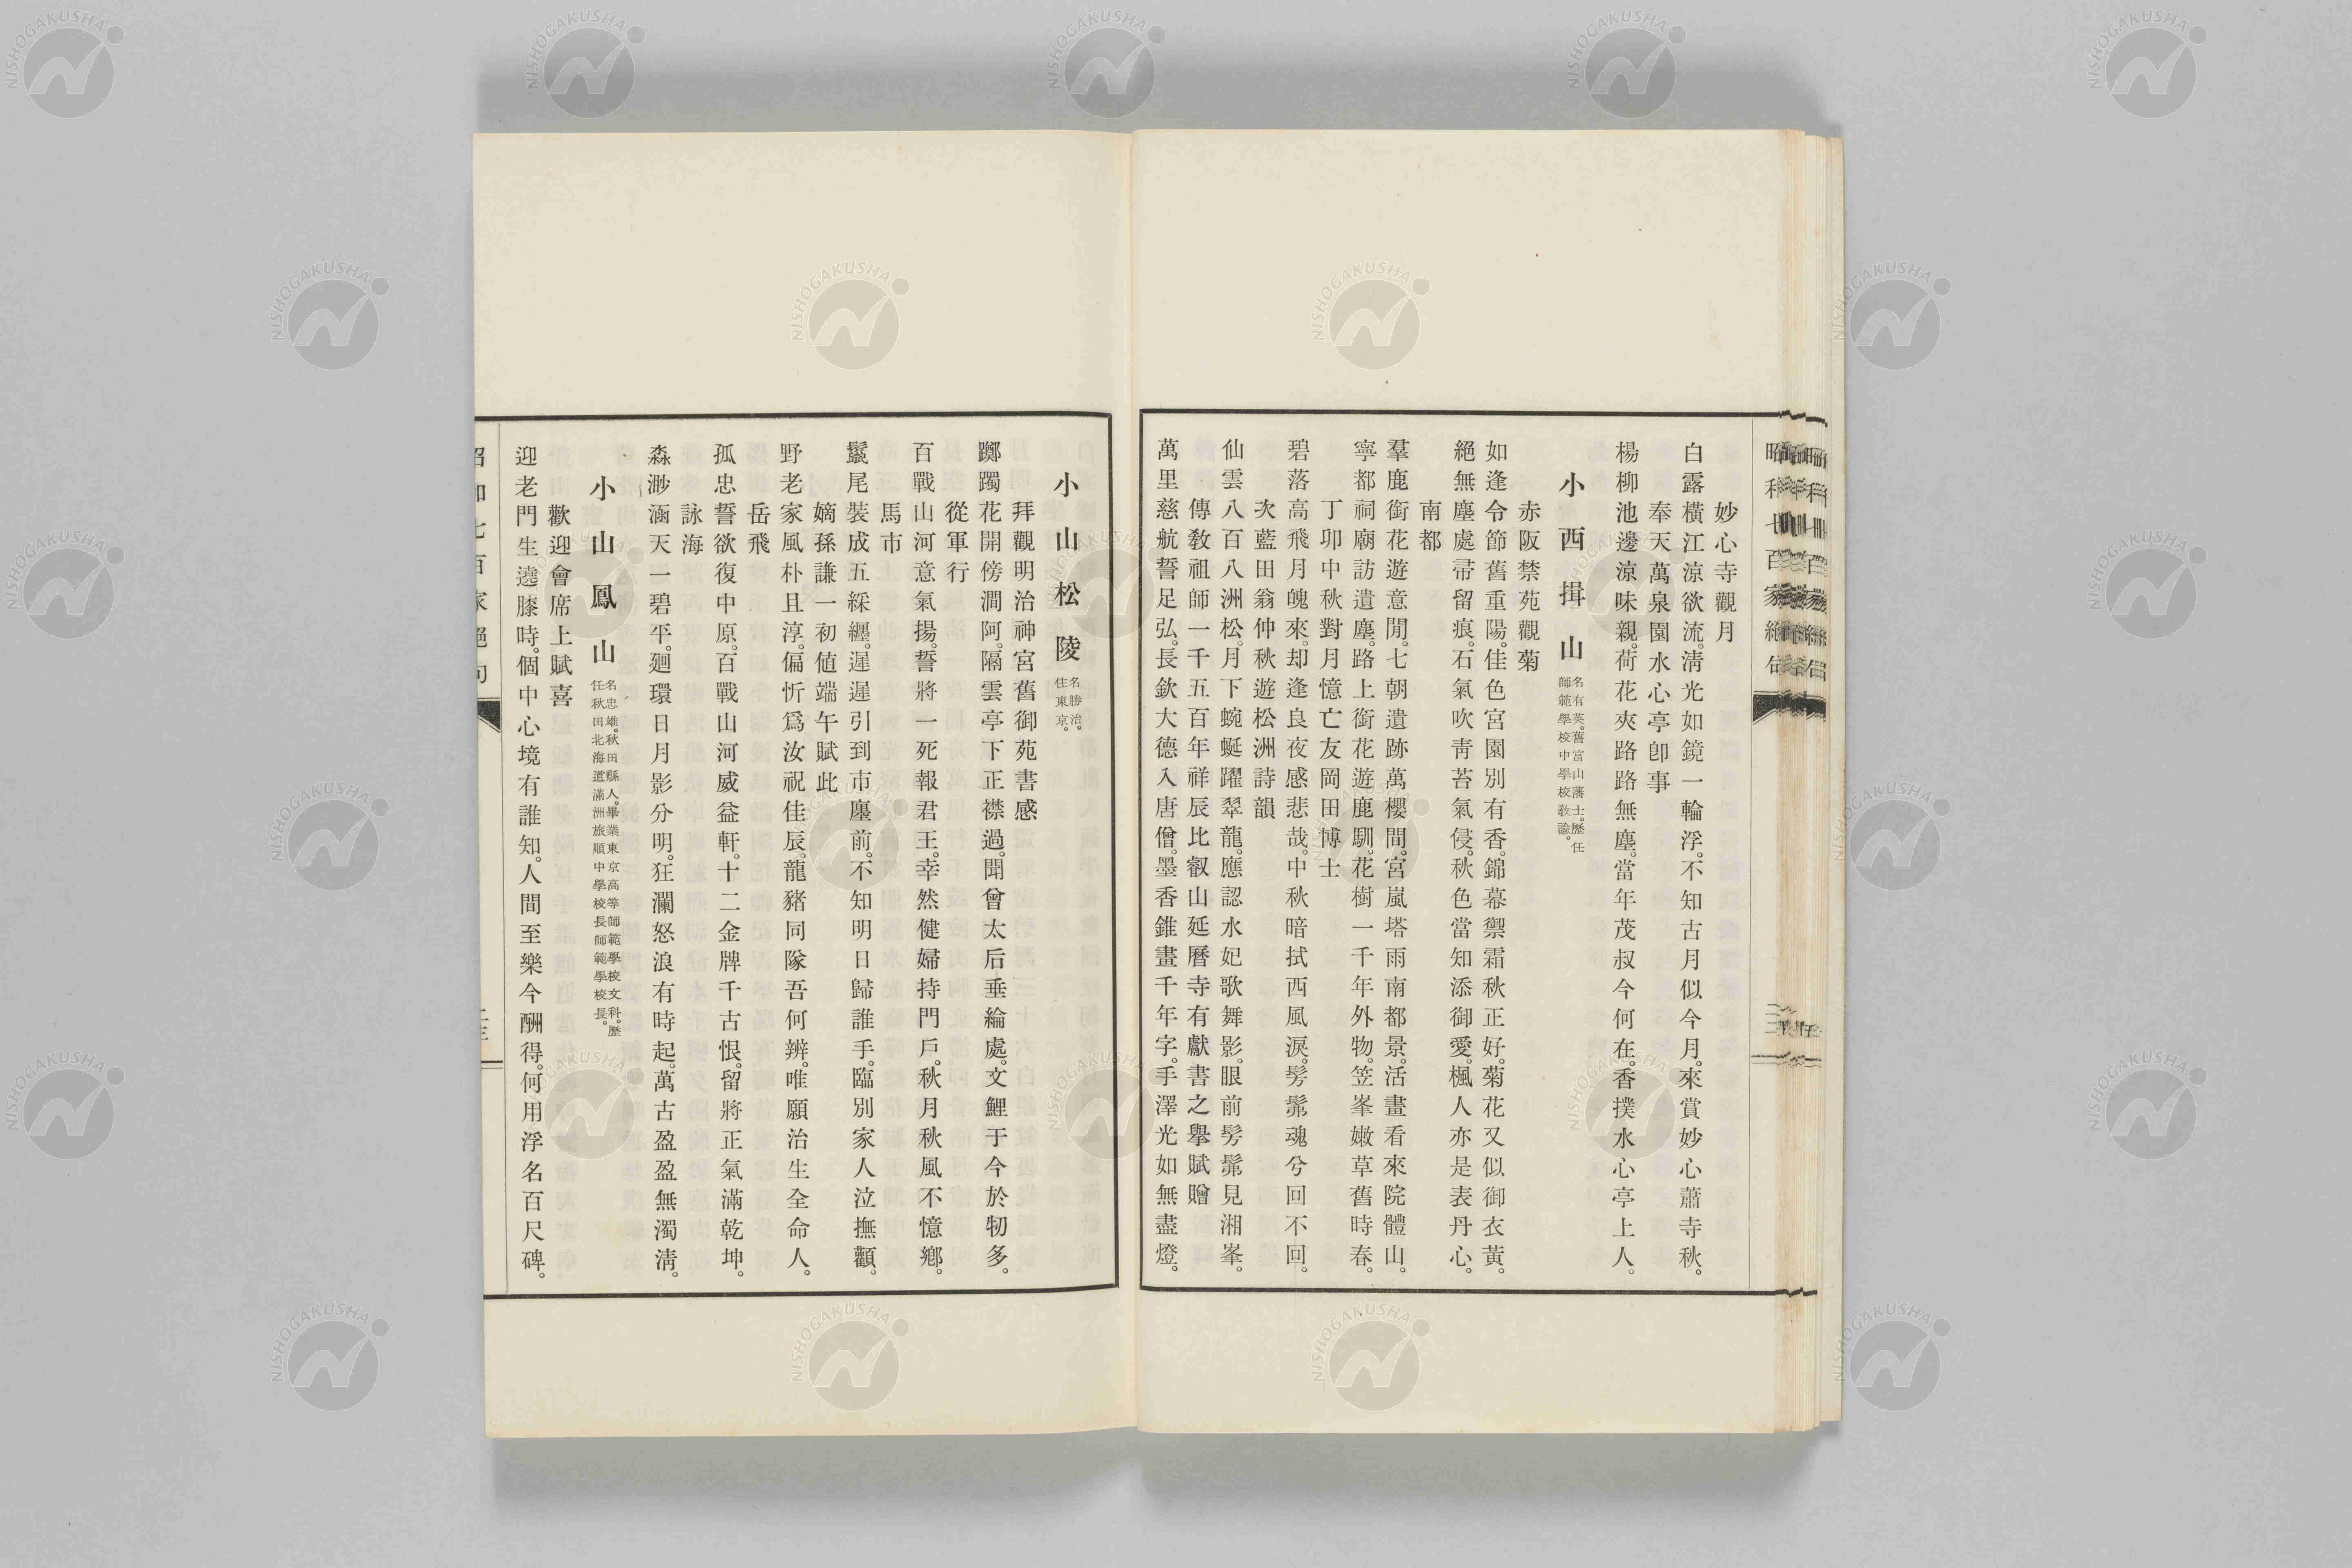 妙心寺觀月
白露橫江涼欲流。淸光如鏡一輪浮。不知古月似今月。來賞妙心蕭寺秋。
奉天萬泉園水心亭卽事
楊柳池邊涼味親。荷花夾路路無塵。當年茂叔今何在。香撲水心亭上人。
小西揖山
名有英。舊富山藩士。歷任
師範學校中學校敎諭。
赤阪禁苑觀菊
如逢令節舊重陽。佳色宮園別有香。錦幕禦霜秋正好。菊花又似御衣黃。
絕無塵處帚留痕。石氣吹靑苔氣侵。秋色當知添御愛。楓人亦是表丹心。
南都
羣鹿銜花遊意閒。七朝遺跡萬櫻間。宮嵐塔雨南都景。活畫看來院體山。
寧都祠廟訪遺塵。路上銜花遊鹿馴。花樹一千年外物。笠峯嫩草舊時春。
丁卯中秋對月憶亡友岡田博士
碧落高飛月魄來。却逢良夜感悲哉。中秋暗拭西風淚。髣髴魂兮回不回。
次藍田翁仲秋遊松洲詩韻
仙雲八百八洲松。月下蜿蜒躍翠龍。應認水妃歌舞影。眼前髣髴見湘峯。
傳敎祖師一千五百年祥辰比叡山延曆寺有獻書之擧賦贈
萬里慈航誓足弘。長欽大德入唐僧。墨香錐畫千年字。手澤光如無盡燈。
小山松陵
名勝治。
住東京。
拜觀明治神宮舊御苑書感
躑躅花開傍澗阿。隔雲亭下正襟過。聞曾太后垂綸處。文鯉于今於牣多。
從軍行
百戰山河意氣揚。誓將一死報君王。幸然健婦持門戶。秋月秋風不憶鄕。
馬市
鬣尾裝成五綵纒。遲遲引到市廛前。不知明日歸誰手。臨別家人泣撫顴。
嫡孫謙一初値端午賦此
野老家風朴且淳。偏忻爲汝祝佳辰。龍豬同隊吾何辨。唯願治生全命人。
岳飛
孤忠誓欲復中原。百戰山河威益軒。十二金牌千古恨。留將正氣滿乾坤。
詠海
森渺涵天一碧平。廻環日月影分明。狂瀾怒浪有時起。萬古盈盈無濁淸。
小山鳳山
名忠雄。秋田縣人。畢業東京高等師範學校文科。歷
任秋田北海道滿洲旅順中學校長師範學校長。
歡迎會席上賦喜
迎老門生遶膝時。個中心境有誰知。人間至樂今酬得。何用浮名百尺碑。
昭和七百家絕句
NISHOGAKUSHA